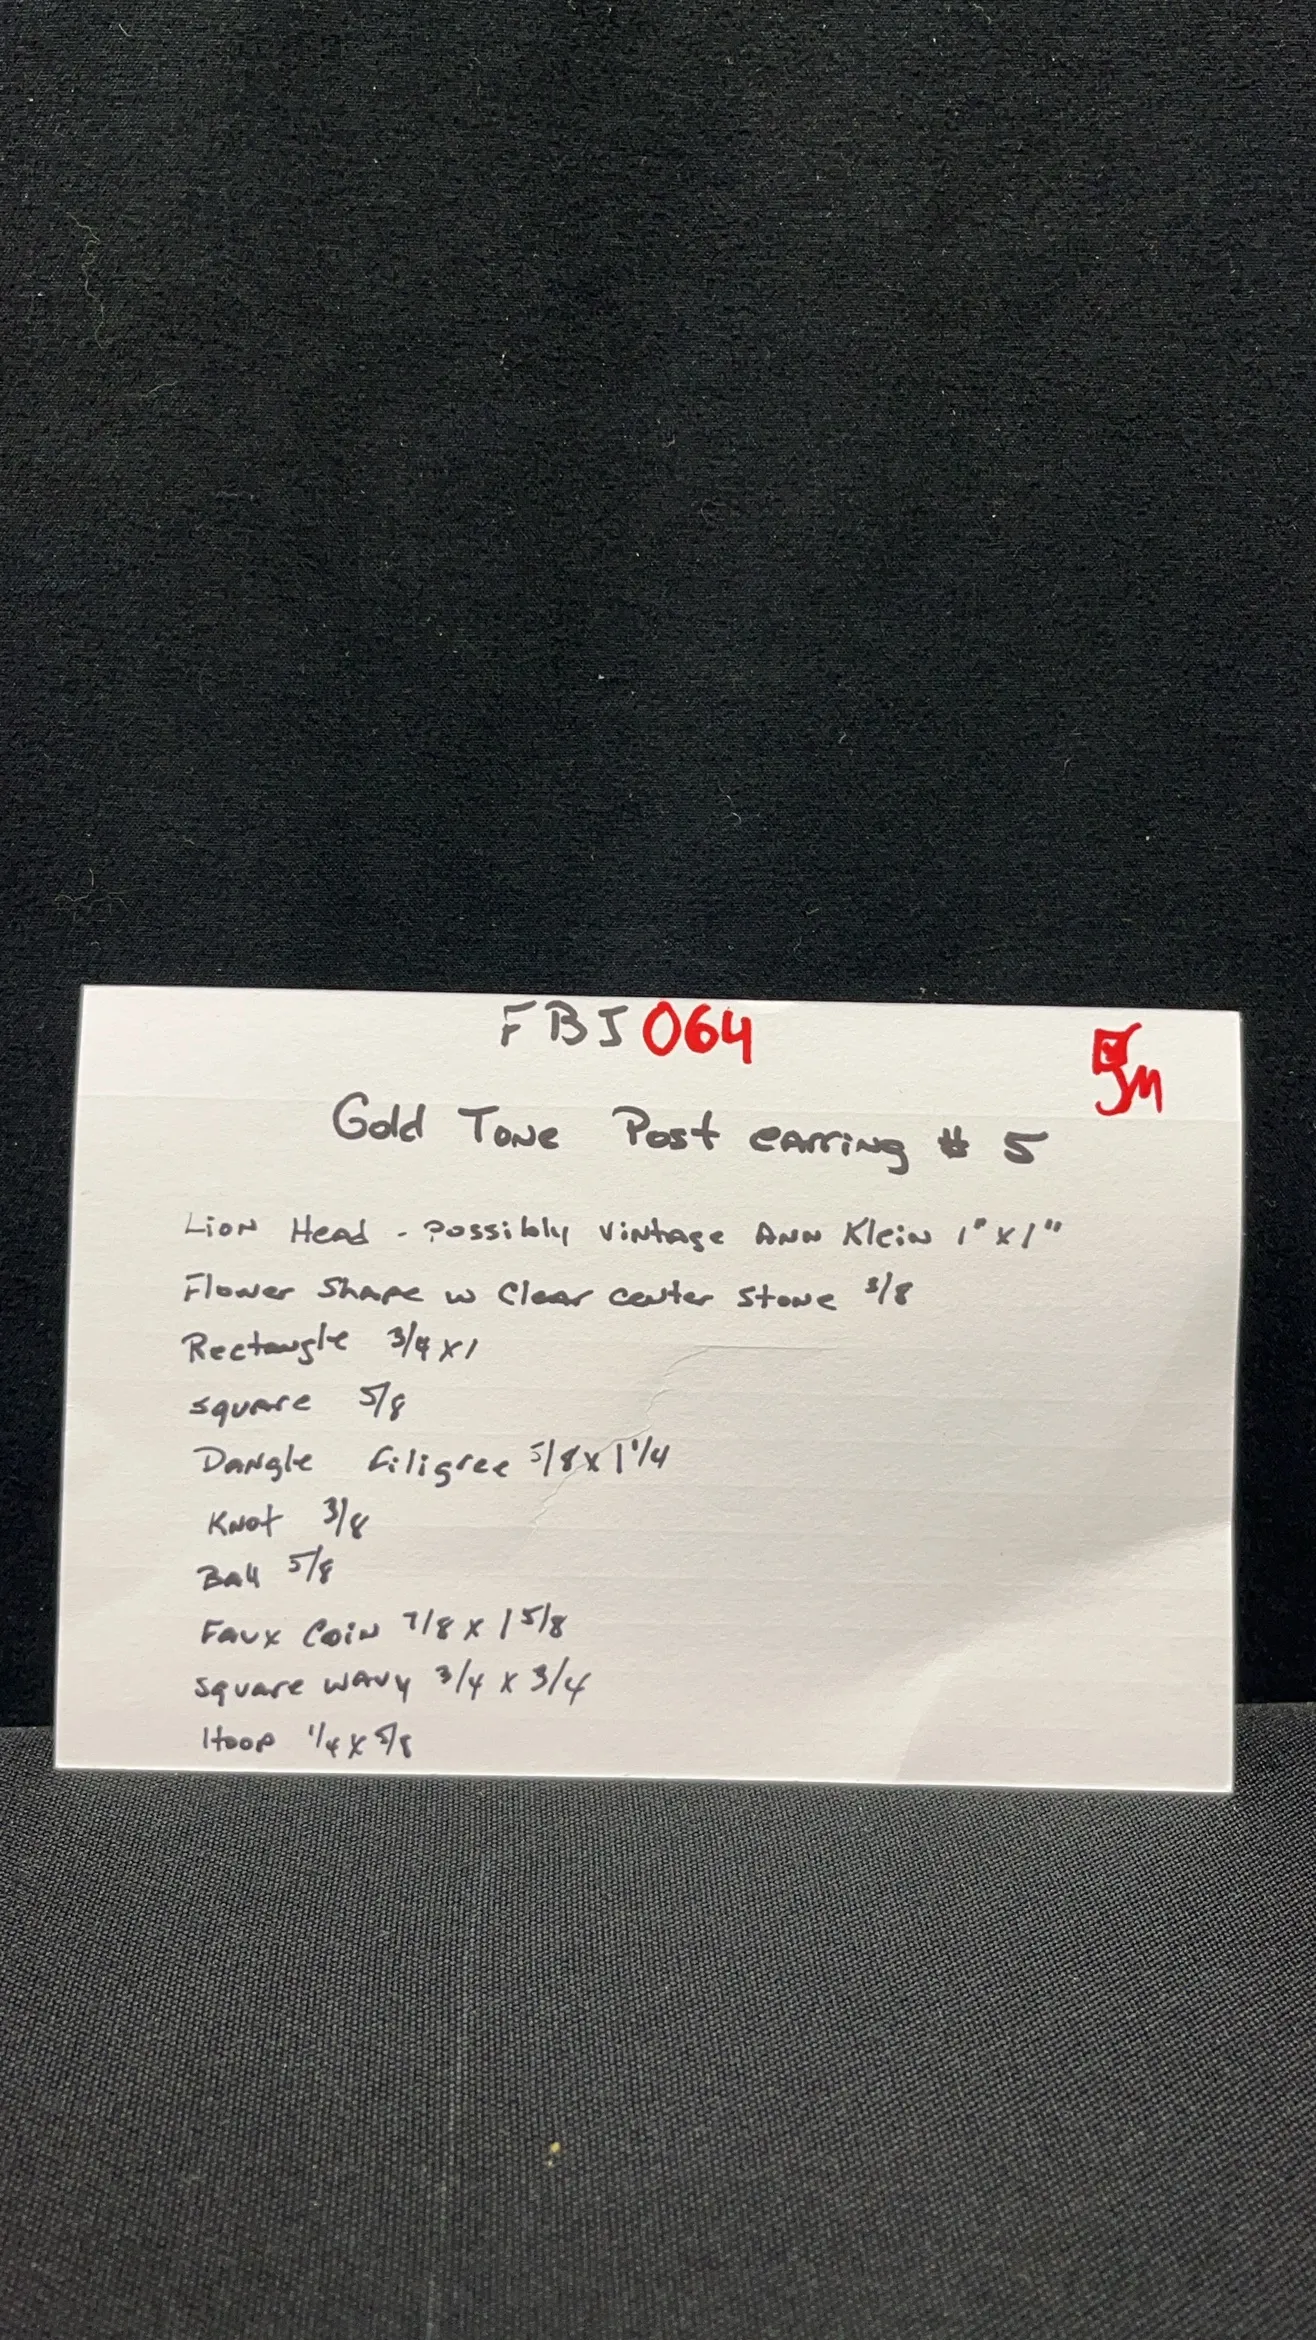 FBJ 064
JM
Gold Tone Post earring # 5
Lion Head - Possibly Vintage Ann Klein 1" x 1"
Flower Shape w Clear center Stone 3/8
Rectangle 3/4 x 1
square 5/8
Dangle filigree 5/8 x 1 1/4
Knot 3/8
Ball 5/8
Faux Coin 7/8 x 1 5/8
square wavy 3/4 x 3/4
Hoop 1/4 x 5/8